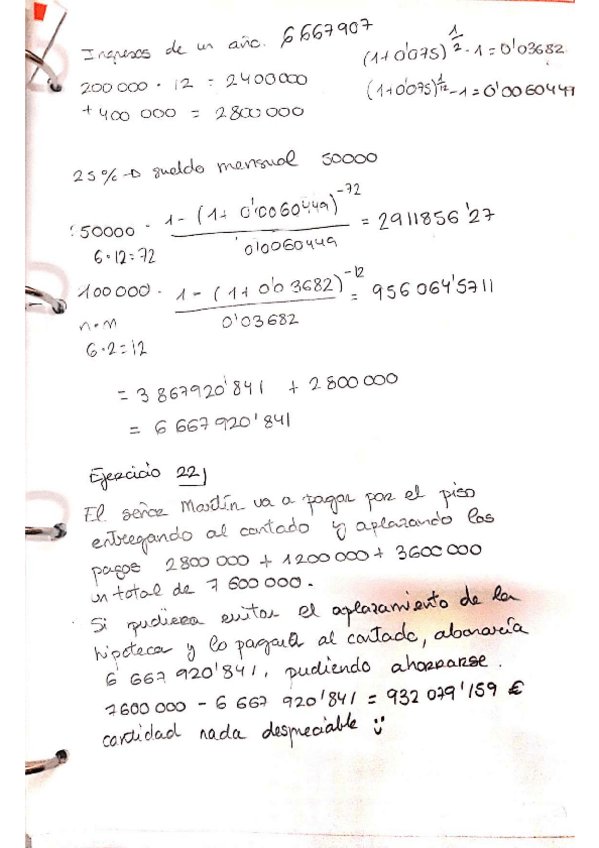 Ingresos de un año. 6667907
(1+0'075)^1/2 - 1 = 0'03682
200 000 · 12 = 2400000
(1+0'075)^1/12 - 1 = 0'0060449
+ 400 000 = 2800000
25% → sueldo mensual 50000
50000 · 1 - (1+ 0'0060449)^-72 / 0'0060449 = 2911856'27
6·12=72
100000 · 1 - (1+0'03682)^-12 / 0'03682 = 956064'5711
n·m
6·2=12
= 3 867920'841 + 2800000
= 6 667 920'841
Ejercicio 22)
El señor Martín va a pagar por el piso
entregando al contado y aplazando los
pagos 2800 000 + 1200 000 + 3600 000
un total de 7 600 000.
Si pudiera evitar el aplazamiento de la
hipoteca y lo pagara al contado, abonaría
6 667 920'841, pudiendo ahorrarse.
7600 000 - 6 667 920'841 = 932 079'159 €
cantidad nada despreciable